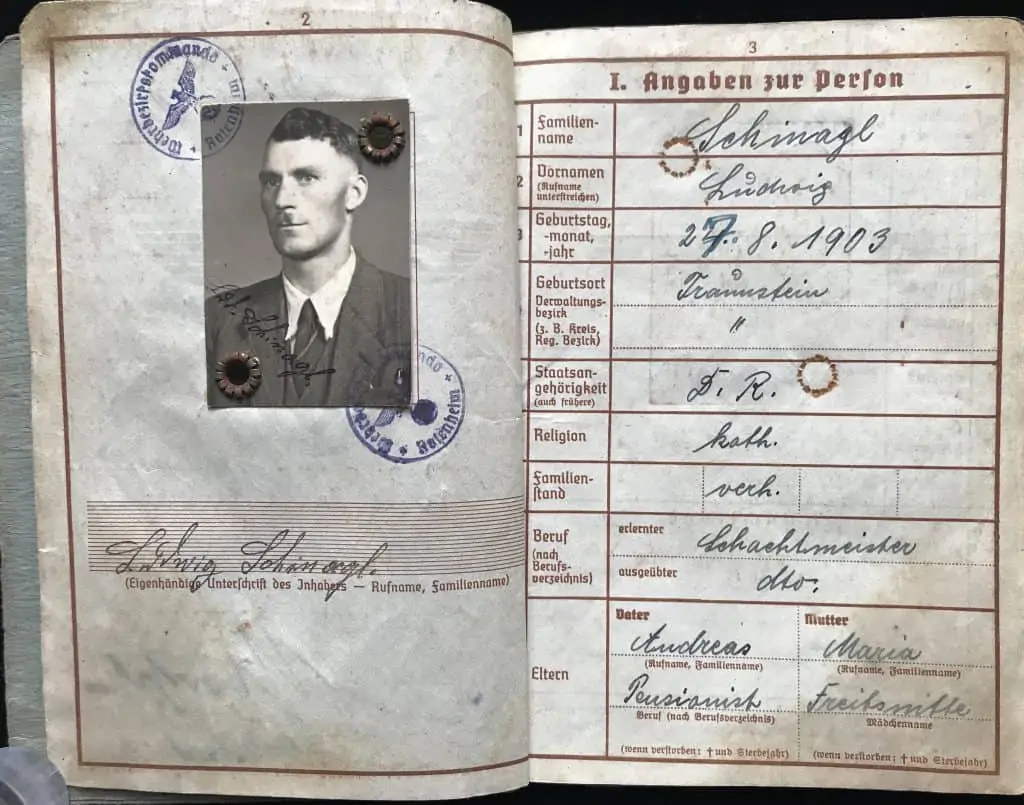 2
Wehrbezirkskommando
Rosenheim
Rosenheim
Ludwig Schinagl.
(Eigenhändige Unterschrift des Inhabers — Rufname, Familienname)
3
I. Angaben zur Person
1 Familien-
name
Schinagl
2 Vornamen
(Rufname
unterstreichen)
Ludwig
3 Geburtstag,
-monat,
-jahr
27. 8. 1903
Geburtsort
Verwaltungs-
bezirk
(z. B. Kreis,
Reg. Bezirk)
Traunstein
"
Staatsan-
gehörigkeit
(auch frühere)
D. R.
Religion
kath.
Familien-
stand
verh.
Beruf
(nach
Berufs-
verzeichnis)
erlernter
Schachtmeister
ausgeübter
dto.
Eltern
Vater
Andreas
(Rufname, Familienname)
Pensionist
Beruf (nach Berufsverzeichnis)
(wenn verstorben: † und Sterbejahr)
Mutter
Maria
(Rufname, Familienname)
Mädchenname
(wenn verstorben: † und Sterbejahr)